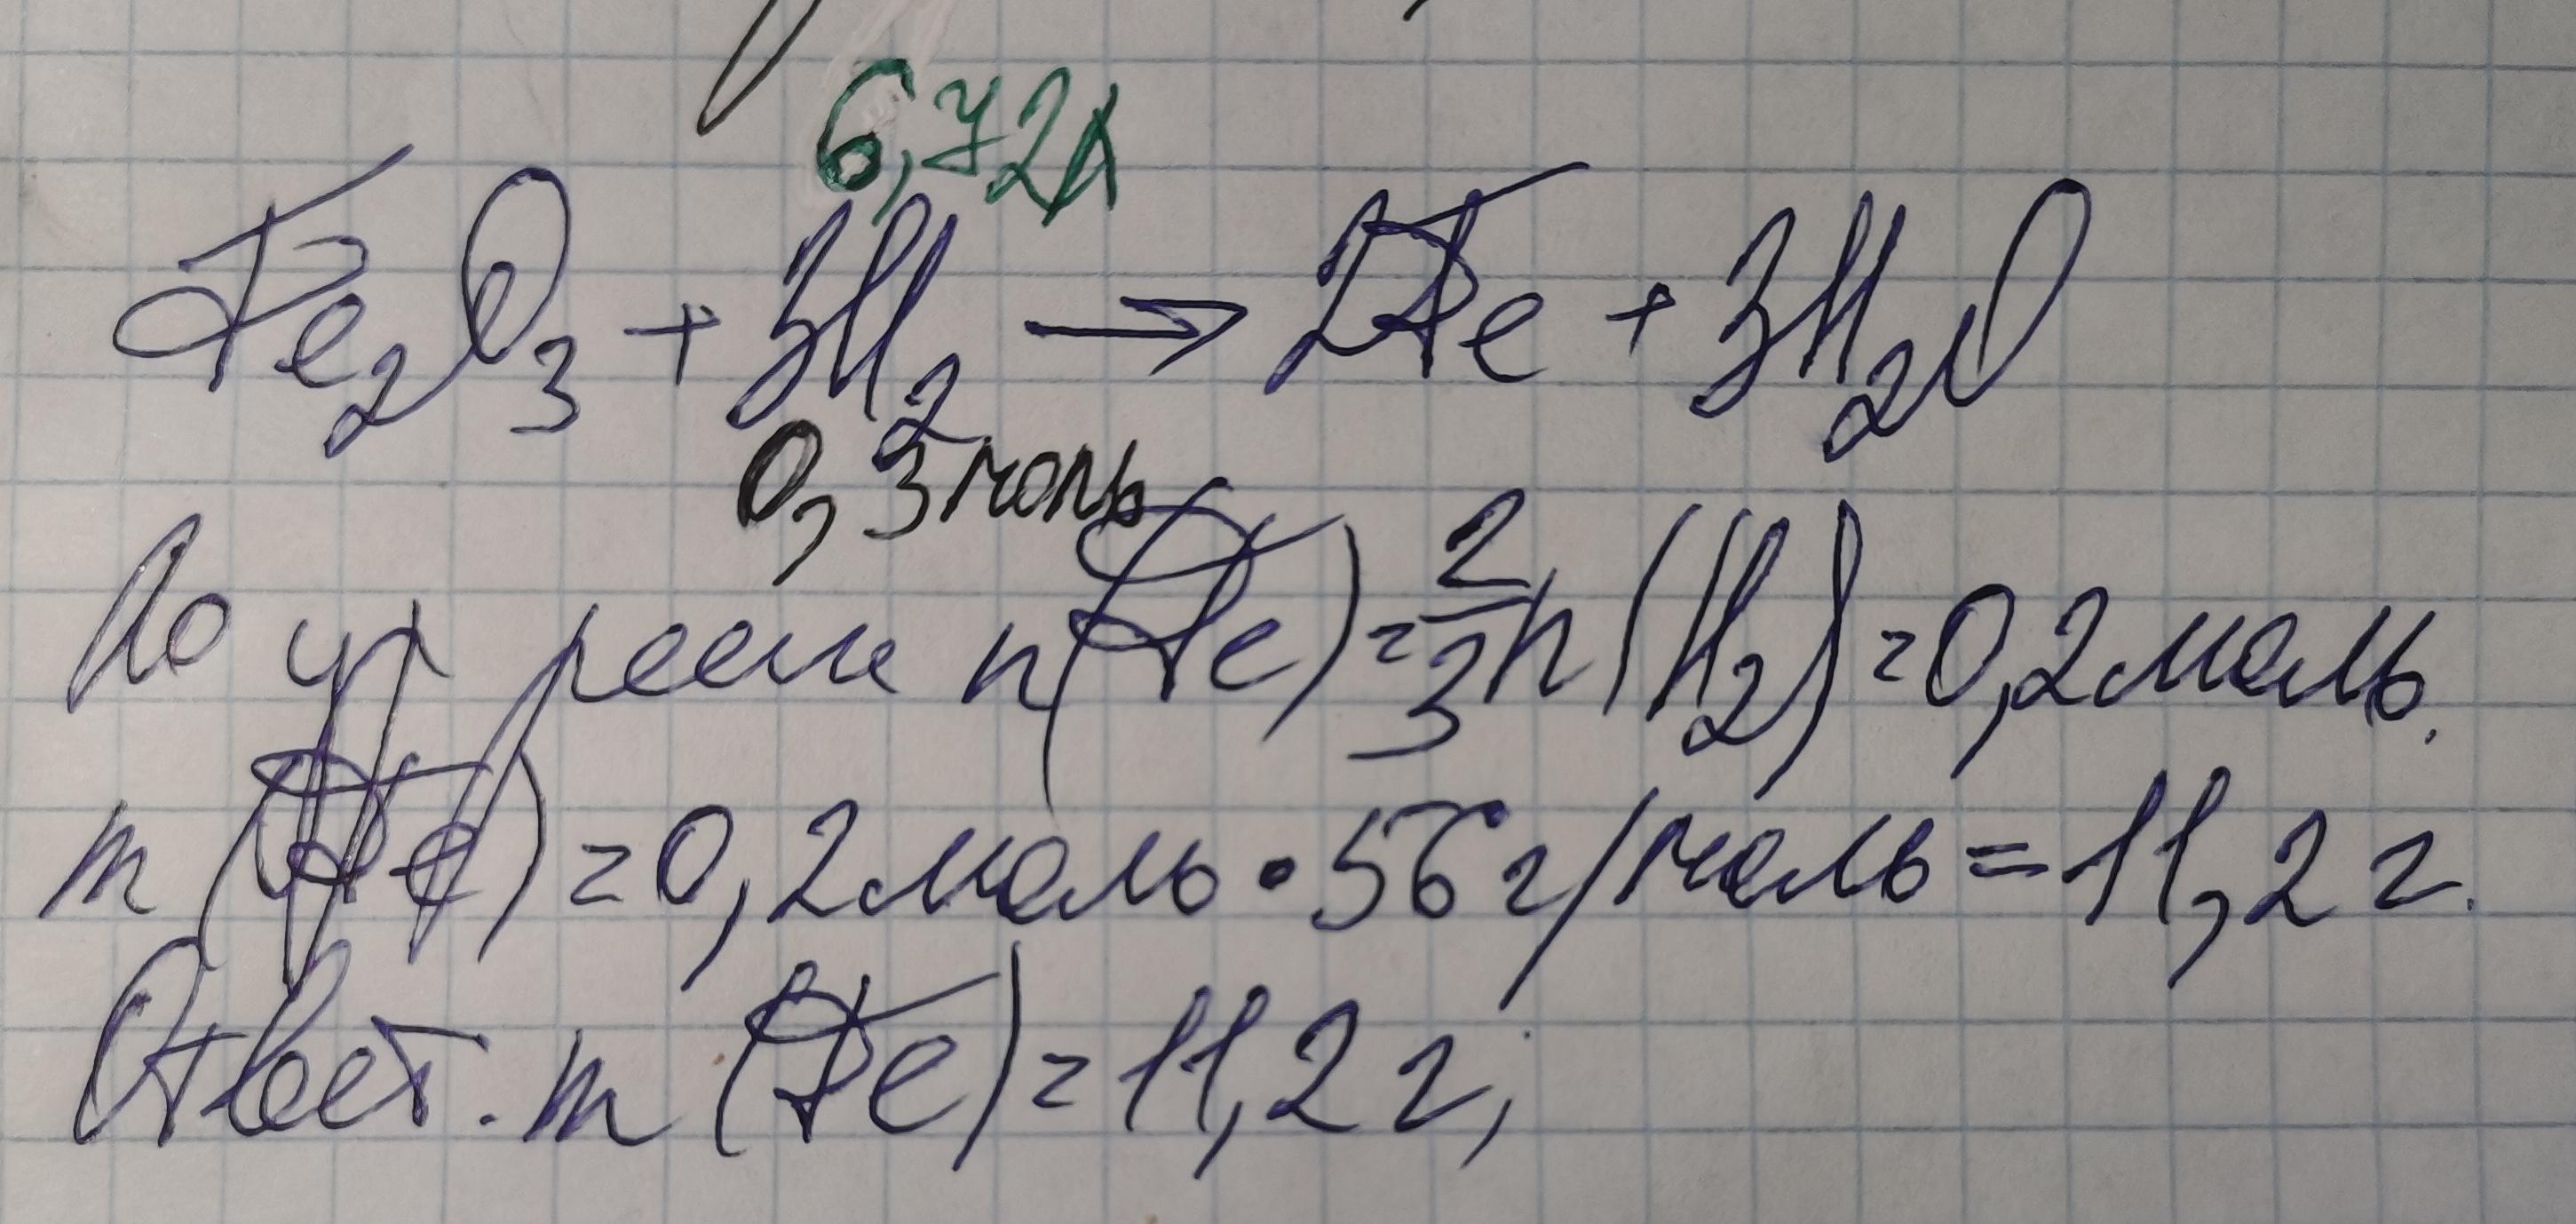 6,72л
Fe₂O₃ + 3H₂ → 2Fe + 3H₂O
0,3 моль
По ур реакц n(Fe) = 2/3 n(H₂) = 0,2 моль.
m(Fe) = 0,2 моль • 56 г/моль = 11,2 г.
Ответ. m(Fe) = 11,2 г;